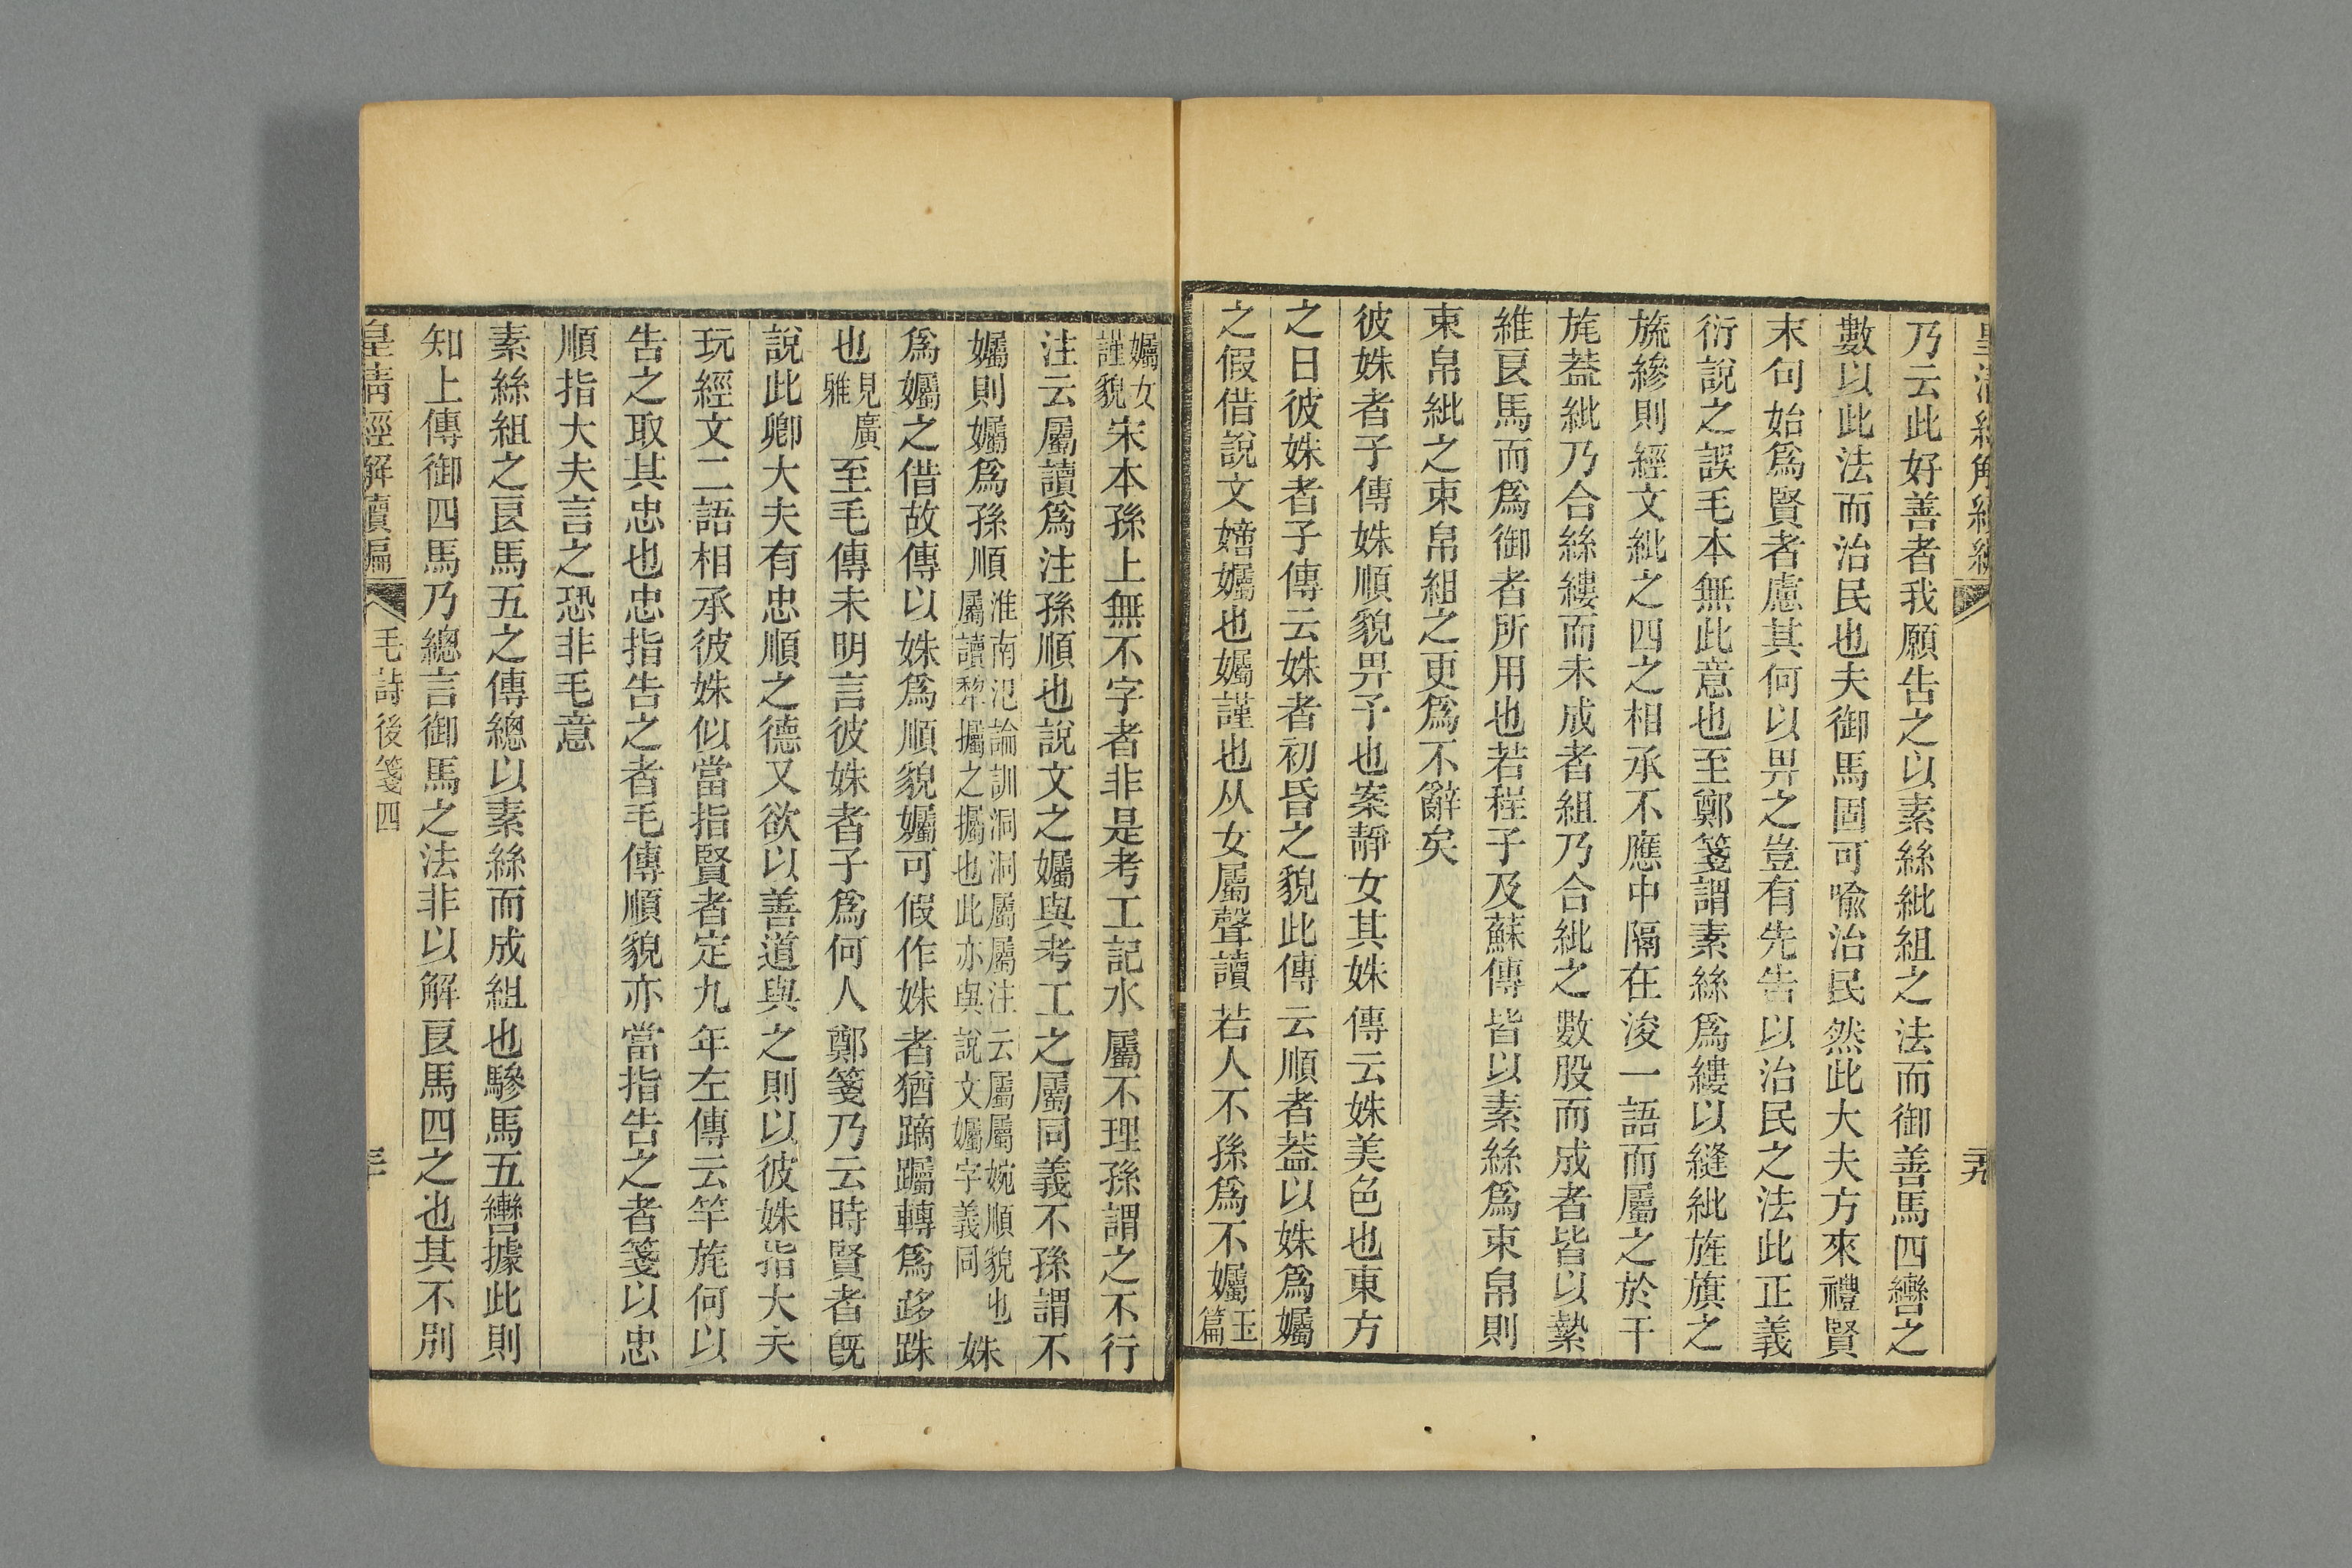 皇清經解續編
乃云此好善者我願告之以素絲紕組之法而御善馬四轡之
數以此法而治民也夫御馬固可喻治民然此大夫方來禮賢
末句始爲賢者慮其何以畀之豈有先告以治民之法此正義
衍說之誤毛本無此意也至鄭箋謂素絲爲縷以縫紕旌旗之
旒縿則經文紕之四之相承不應中隔在浚一語而屬之於干
旄葢紕乃合絲縷而未成者組乃合紕之數股而成者皆以縶
維良馬而爲御者所用也若程子及蘇傳皆以素絲爲束帛則
束帛紕之束帛組之更爲不辭矣
彼姝者子傳姝順貌畀予也案靜女其姝傳云姝美色也東方
之日彼姝者子傳云姝者初昏之貌此傳云順者葢以姝爲孎
之假借說文嬧孎也孎謹也从女屬聲讀若人不孫爲不孎玉篇
孎女謹貌宋本孫上無不字者非是考工記水屬不理孫謂之不行
注云屬讀爲注孫順也說文之孎與考工之屬同義不孫謂不
孎則孎爲孫順淮南氾論訓洞洞屬屬注云屬屬婉順貌也屬讀犂攦之攦也此亦與說文孎字義同姝
爲孎之借故傳以姝爲順貌孎可假作姝者猶蹢躅轉爲跢跦
也見廣雅至毛傳未明言彼姝者子爲何人鄭箋乃云時賢者旣
說此卿大夫有忠順之德又欲以善道與之則以彼姝指大夫
玩經文二語相承彼姝似當指賢者定九年左傳云竿旄何以
告之取其忠也忠指告之者毛傳順貌亦當指告之者箋以忠
順指大夫言之恐非毛意
素絲組之良馬五之傳總以素絲而成組也驂馬五轡據此則
知上傳御四馬乃總言御馬之法非以解良馬四之也其不別
皇清經解續編 毛詩後箋四